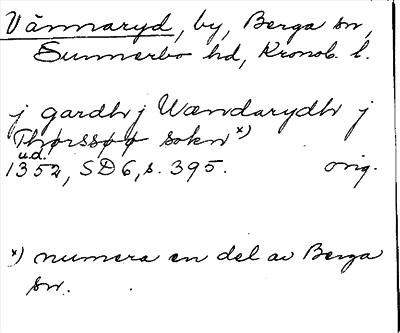 Vännaryd, by, Berga sn,
Sunnerbo hd, Kronob. l.
j gardh j Wændarydh j
Thørssøø sokn x)
u.d.
1352, SD6, s. 395. orig.
x) numera en del av Berga
sn.